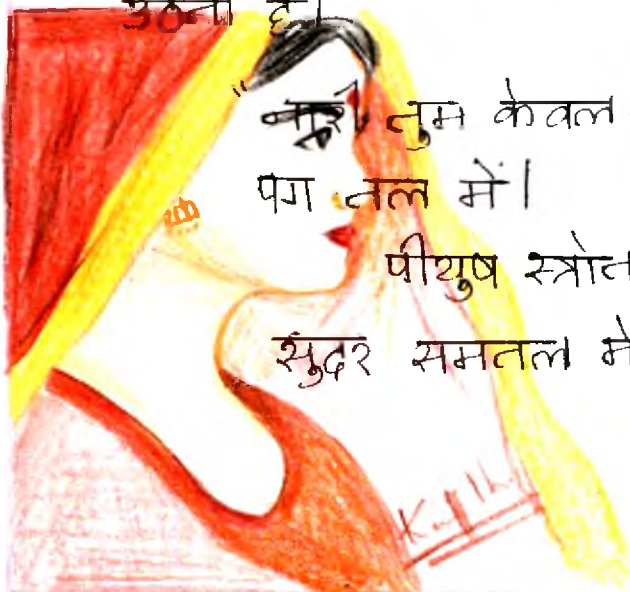 उठना है।
"नारी तुम केवल
पग तल में।
पीयुष स्त्रोत
सुंदर समतल मे